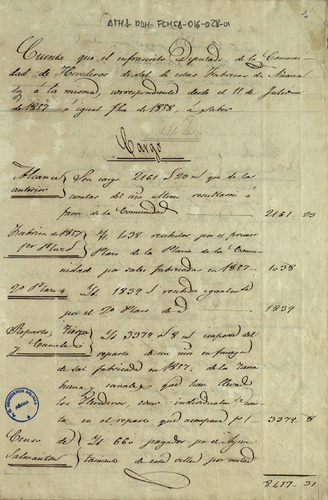 ATHA-DAH-FCMSA-016-028-01
1
Cuenta que el infrascrito Diputado de la Comuni
dad de Herederos de Sal de estas Fabricas de Añana
da á la misma, correspondiente desde el 11 de Julio
de 1857 á igual fha de 1858. á saber
Cargo
Alcance anterior
Son cargo 2161 20 mrs que de las
cuentas del año ultimo resultaron á
favor de la Comunidad
2161
Fabrica de 1857
1er Plazo
Yt. 1038 recibidos por el primer
Plazo de la de la Comu-
nidad por sales fabricadas en 1857
1038
2o Plazo
Yd. 1839 recibidos igualmente
por el 2o Plazo de
1839
Reparto
y Canales
Yd 3378 8 mrs importe del
reparto de un en fanega
de sal fabricada en 1857, de la
buena y canales que han llevado
los individuales
en el reparto que acompaña
3378 8
Censo de
Salmantón
Yd 660 pagados por el Ayun-
tamiento de esta villa por mitad
8417